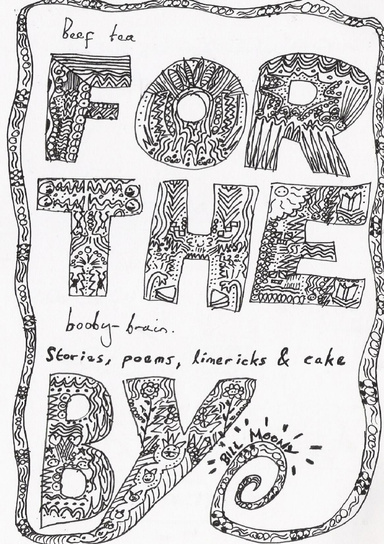 Beef tea
FOR
THE
booby-brain.
Stories, poems, limericks & cake
BY
BILL MOONY